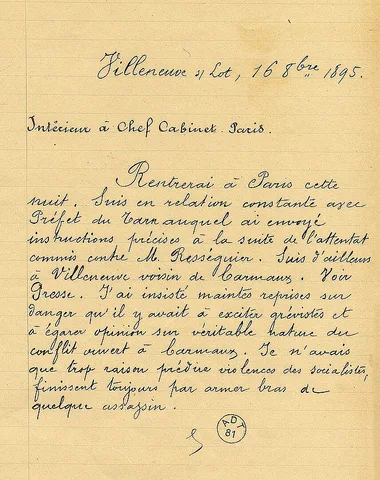 Villeneuve s/ Lot, 16 8bre 1895.
Intérieur à Chef Cabinet Paris.
Rentrerai à Paris cette
nuit. Suis en relation constante avec
Préfet du Tarn auquel ai envoyé
instructions précises à la suite de l'attentat
commis contre M. Rességuier. Suis d'ailleurs
à Villeneuve voisin de Carmaux. Voir
Presse. J'ai insisté maintes reprises sur
danger qu'il y avait à exciter grévistes et
à égarer opinion sur véritable nature du
conflit ouvert à Carmaux. Je n'avais
que trop raison prédire violences des socialistes,
finissent toujours par armer bras de
quelque assassin.
ADT
81